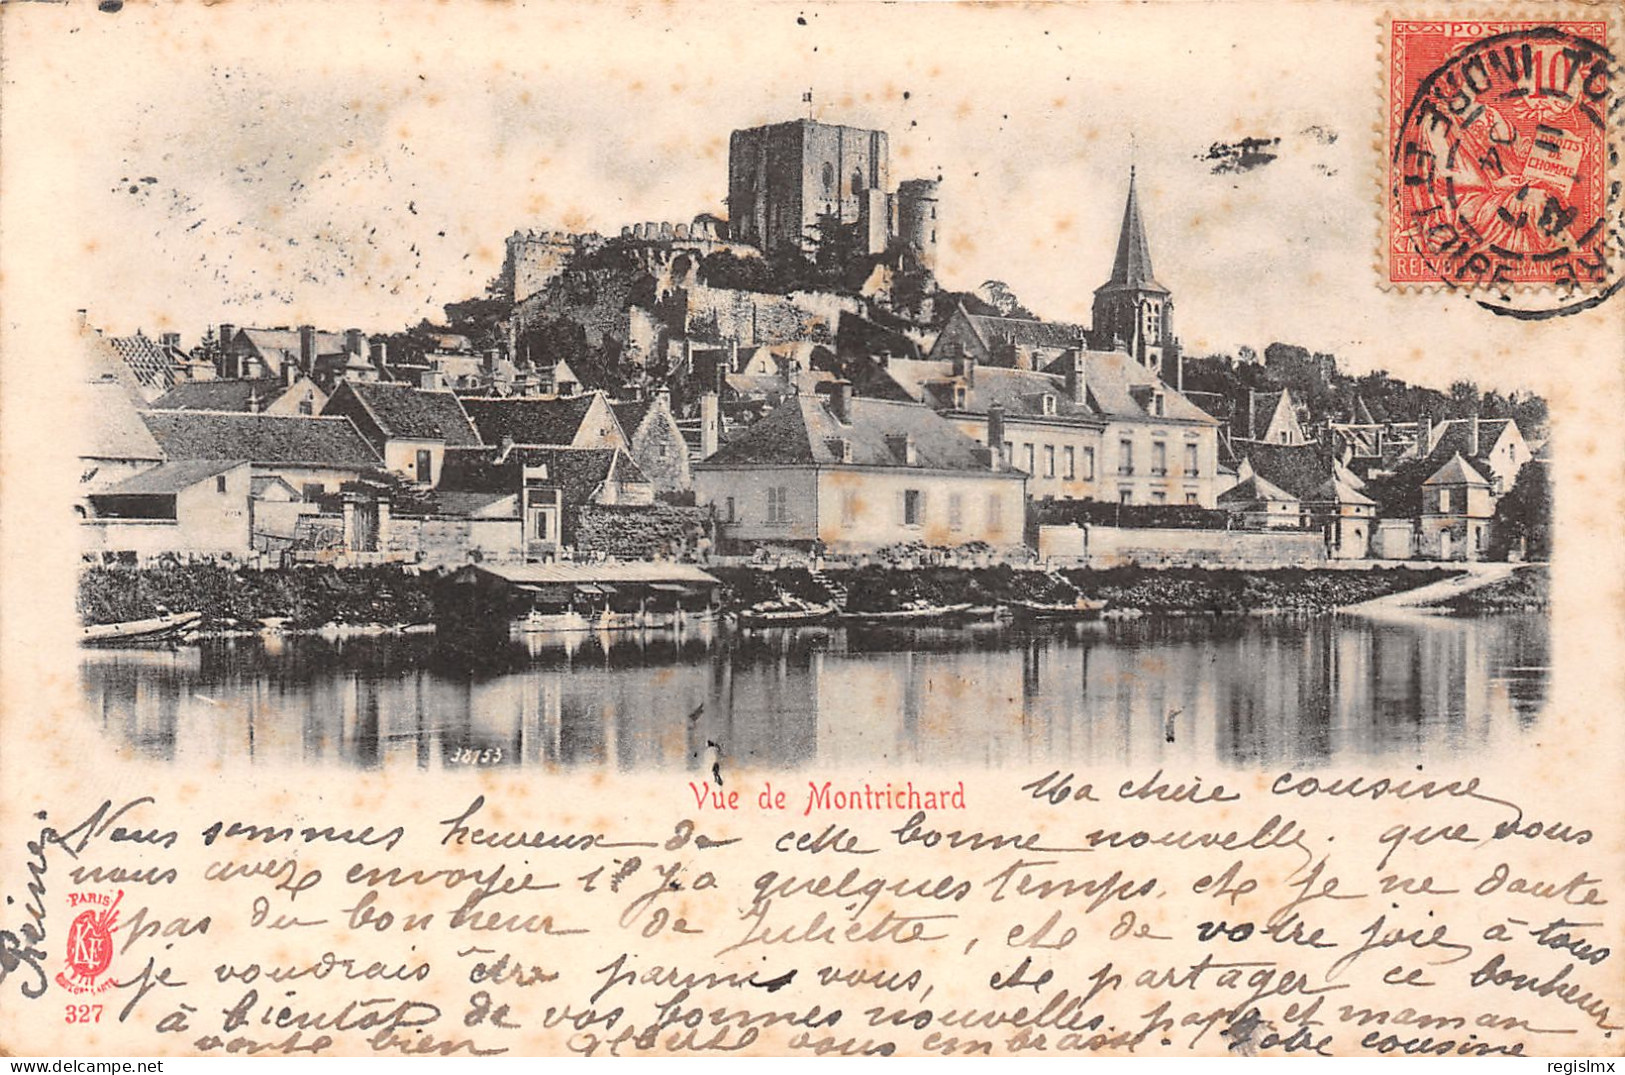 POSTES
10
DROITS
DE
L'HOMME
INDRE ET LOIRE
04
38153
Vue de Montrichard
Ma chère cousine
Nous sommes heureux de cette bonne nouvelle. que vous
nous avez envoyée il y a quelques temps, et je ne doute
pas du bonheur de Juliette, et de votre joie à tous
je voudrais être parmis vous, et partager ce bonheur.
à bientôt de vos bonnes nouvelles, papa et maman
vont bien vous embrasse. Votre cousine
Reine
PARIS
327
regislmx